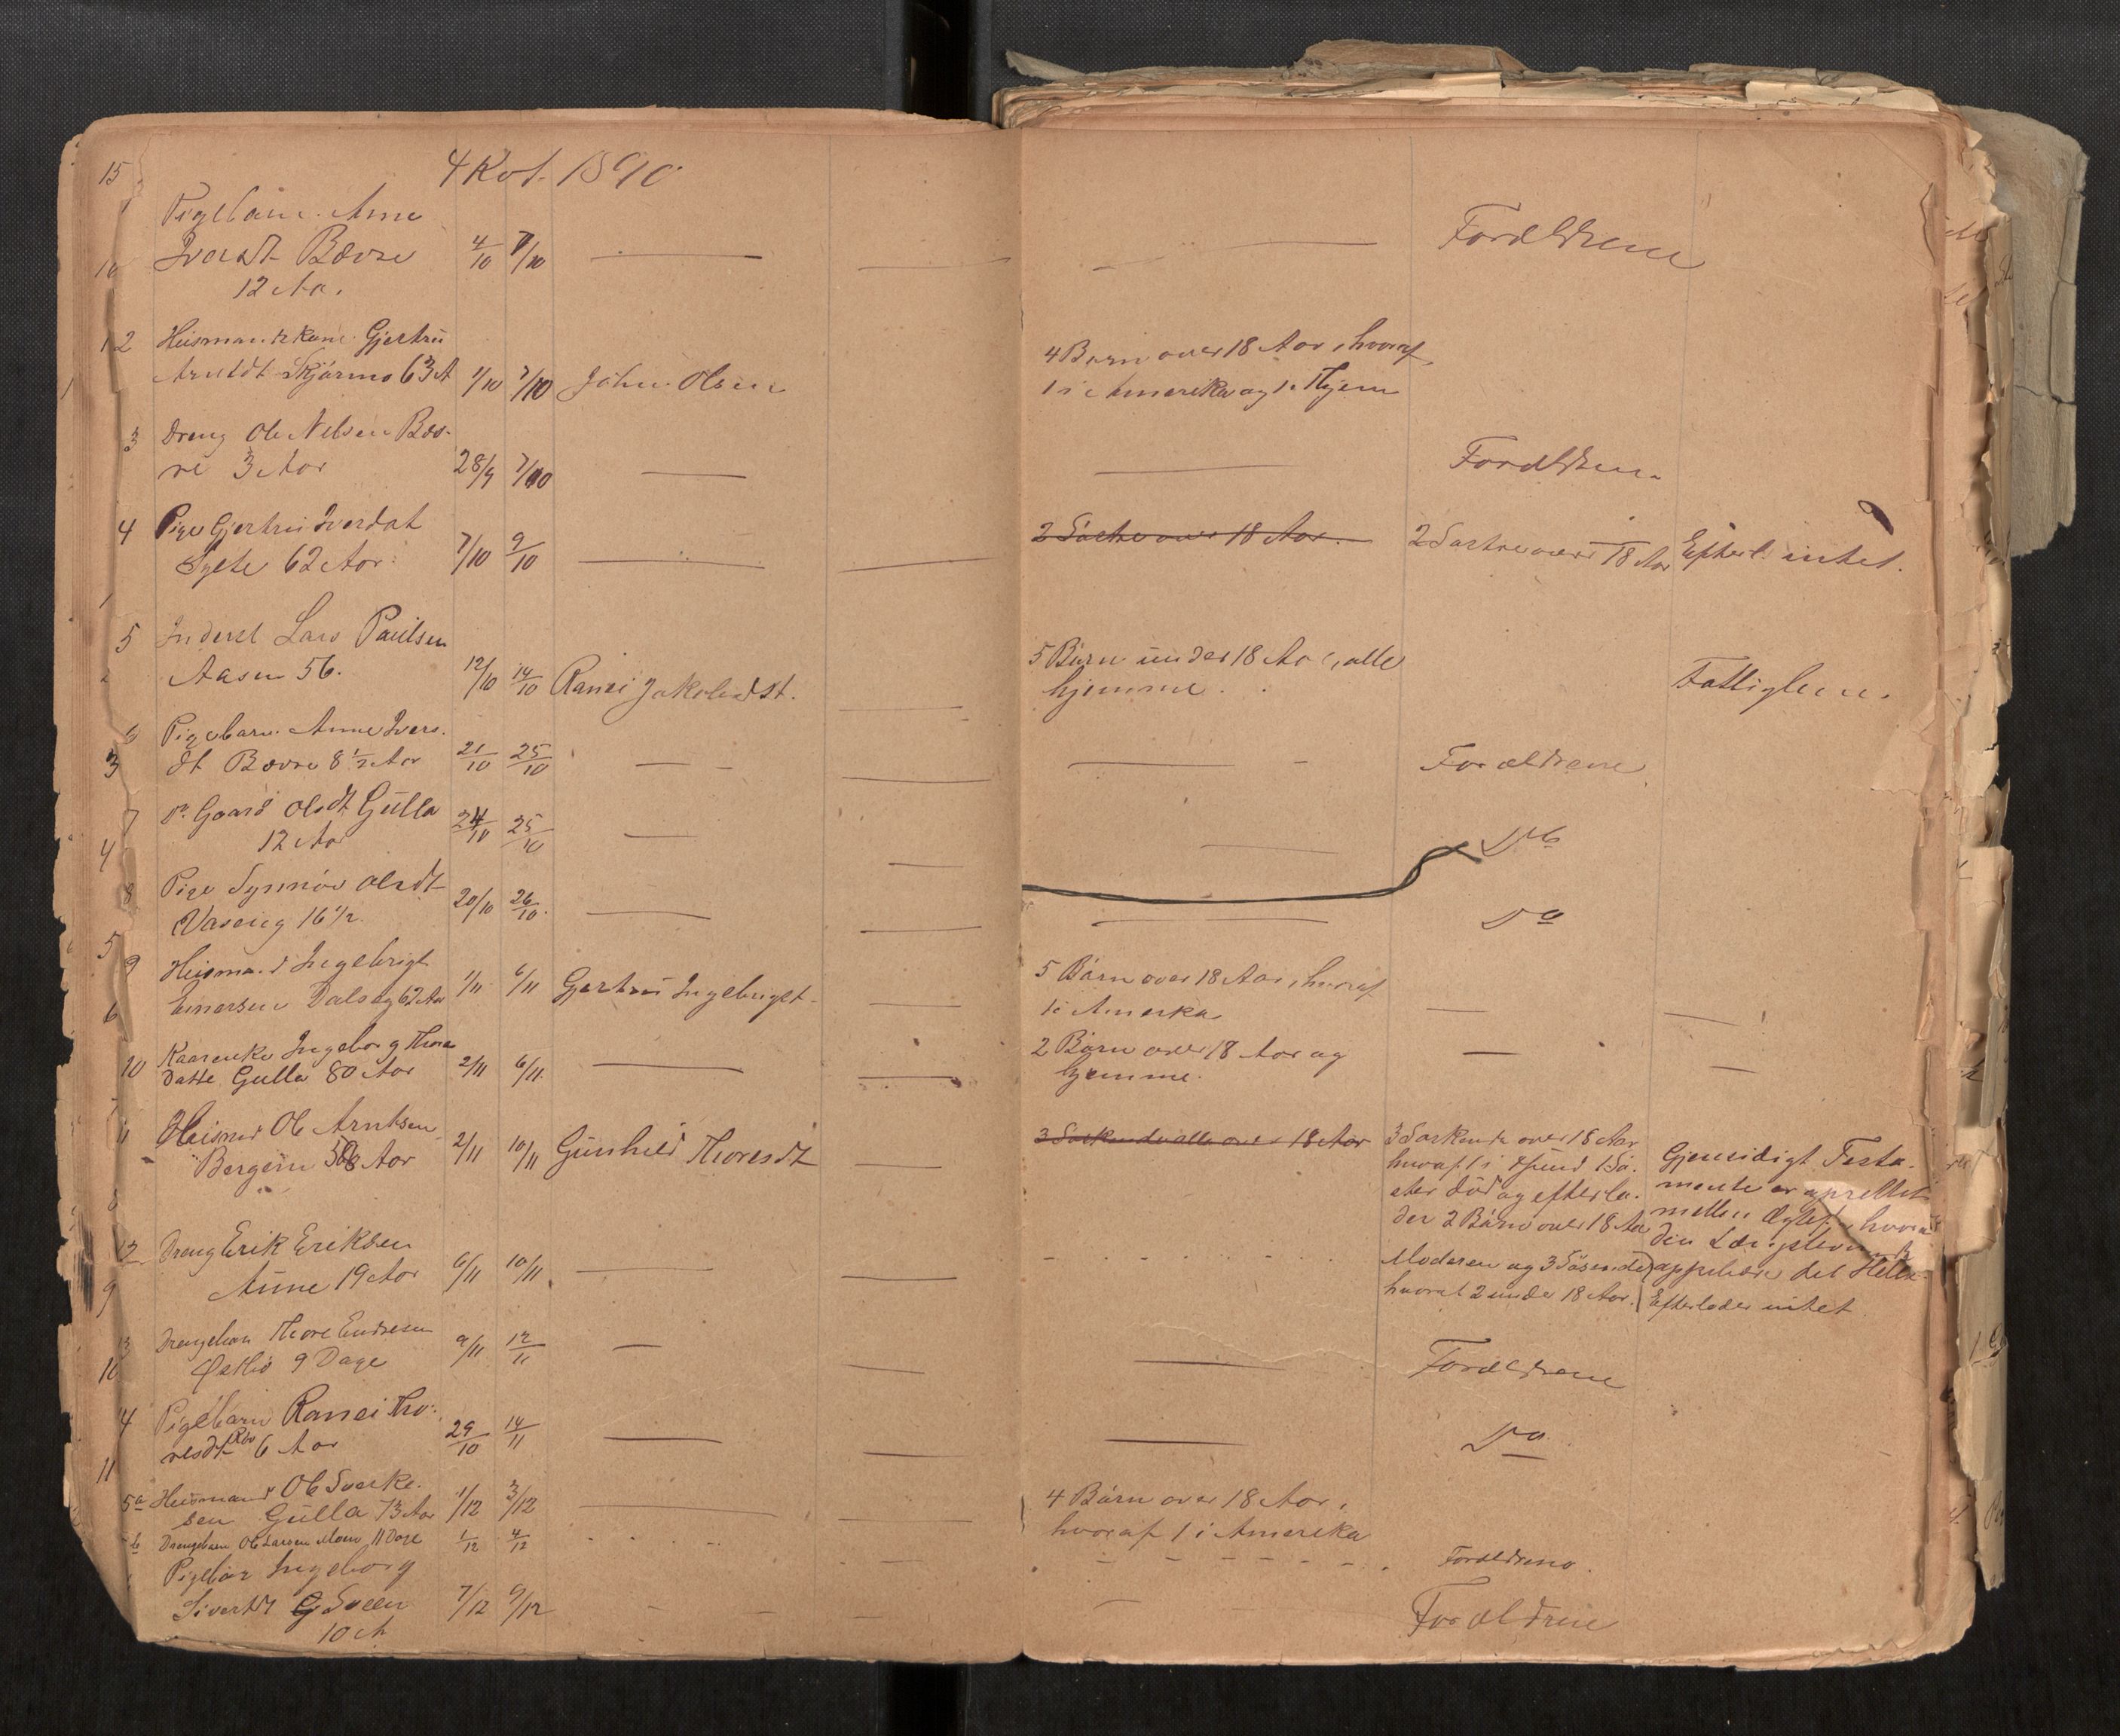 15
4 Kvt. 1890
1 Pigebarn Anne
Iversdt. Bævre 4/10 7/10 Forældrene
12 Aa.
2 Husmandskone Gjertru
Arntsdt. Skjørmo 63 A 1/10 7/10 John Olsen
4 Børn over 18 Aar, hvoraf
1 i Amerika og 1 Hjem
3 Dreng Ole Nilsen Bæv-
re 3 Aar 28/9 7/10 Forældrene
4 Pige Gjertru Iversdat
Sylte 62 Aar 7/10 9/10
2 Søstre over 18 Aar. 2 Søstre over 18 Aar Efterl. intet.
5 Inderst Lars Paulsen
Aasen 56. 12/10 14/10 Ranei Jakobsdt.
5 Børn under 18 Aar, alle
hjemme. Fattiglem.
6 Pigebarn Anne Ivers-
dt Bævre 8 1/2 Aar 21/10 25/10 Forældrene
7 Do Gaard Olsdt Gulla
12 Aar 24/10 25/10 Do
8 Pige Synnøv Olsdt
Vaseng 16 1/2 20/10 26/10 Do
9 Husmand Ingebrigt
Einersen Dalseg 62 Aar 1/11 6/11 Gjertru Ingebrigt
5 Børn over 18 Aar, hvoraf
1 i Amerka
10 Kaarenke Ingeborg Thores
Datte Gulla 80 Aar 2/11 6/11
2 Børn over 18 Aar og
hjemme.
11 Husmd Ole Arntsen
Bergem 58 Aar 2/11 10/11 Gunhild Thoresdt
3 Søskende alle over 18 Aar
3 Søskende over 18 Aar
hvoraf 1 i Sø-
ster død og efterla-
der 2 Børn over 18 Aar
Gjensidigt Testa-
mente er oprettet
mellem Ægtef. hvor
den Længstlevende
oppebære det Hele.
12 Dreng Erik Eriksen
Aune 19 Aar 6/11 10/11
Moderen og 3 Søskende
hvoraf 2 under 18 Aar. Efterlader intet
13 Drengebarn Thore Endresen
Østbø 9 Dage 9/11 12/11 Forældrene
4 Pigebarn Ranei Tho-
resdt. Røv 6 Aar 29/10 14/11 Do
5a Husmand Ole Sverke-
sen Gulla 73 Aar 1/12 3/12
4 Børn over 18 Aar,
hvoraf 1 i Amerika
b Drengebarn Ole Larsen Moen 11 Dage 1/12 4/12 Forældrene.
Pigebar Ingeborg
Sivertdt Sveen 7/12 9/12 Forældrene
10 A